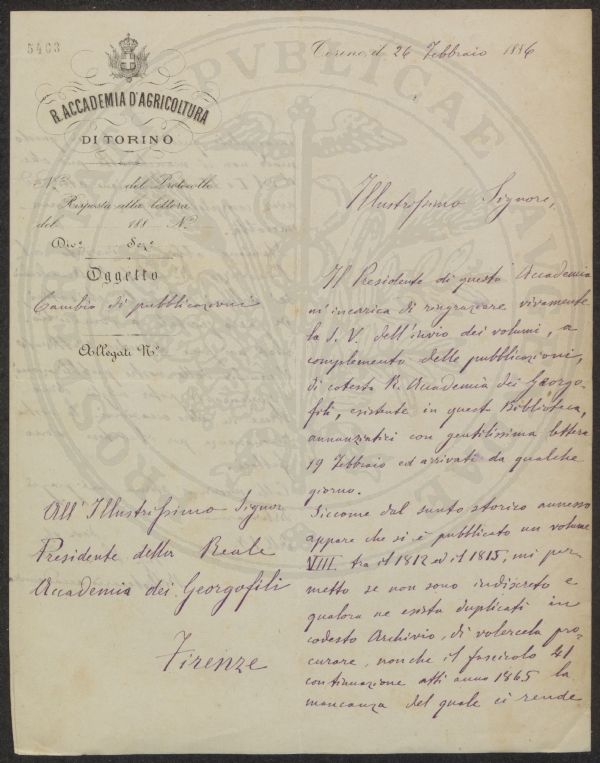 5463
Torino, il 26 Febbraio 1886
R. ACCADEMIA D'AGRICOLTURA
DI TORINO
N.° del Protocollo
Risposta alla lettera
del 188 N.°
Div.e Sez.e
Oggetto
Cambio di pubblicazioni
Allegati N.°
Illustrissimo Signore,
Il Presidente di questa Accademia
m'incarica di ringraziare vivamente
la S. V. dell'invio dei volumi, a
complemento delle pubblicazioni,
di cotesta R. Accademia dei Georgo-
fili, esistente in questa Biblioteca,
annunziatici con gentilissima lettera
19 Febbraio ed arrivati da qualche
giorno.
Siccome dal sunto storico annesso
appare che si è pubblicato un volume
VIII tra il 1812 ed il 1815, mi per-
metto se non sono indiscreto e
qualora ne esista duplicati in
codesto Archivio, di volercela pro-
curare, nonchè il fascicolo 41
continuazione atti anno 1865 la
mancanza del quale ci rende
All'Illustrissimo Signor
Presidente della Reale
Accademia dei Georgofili
Firenze